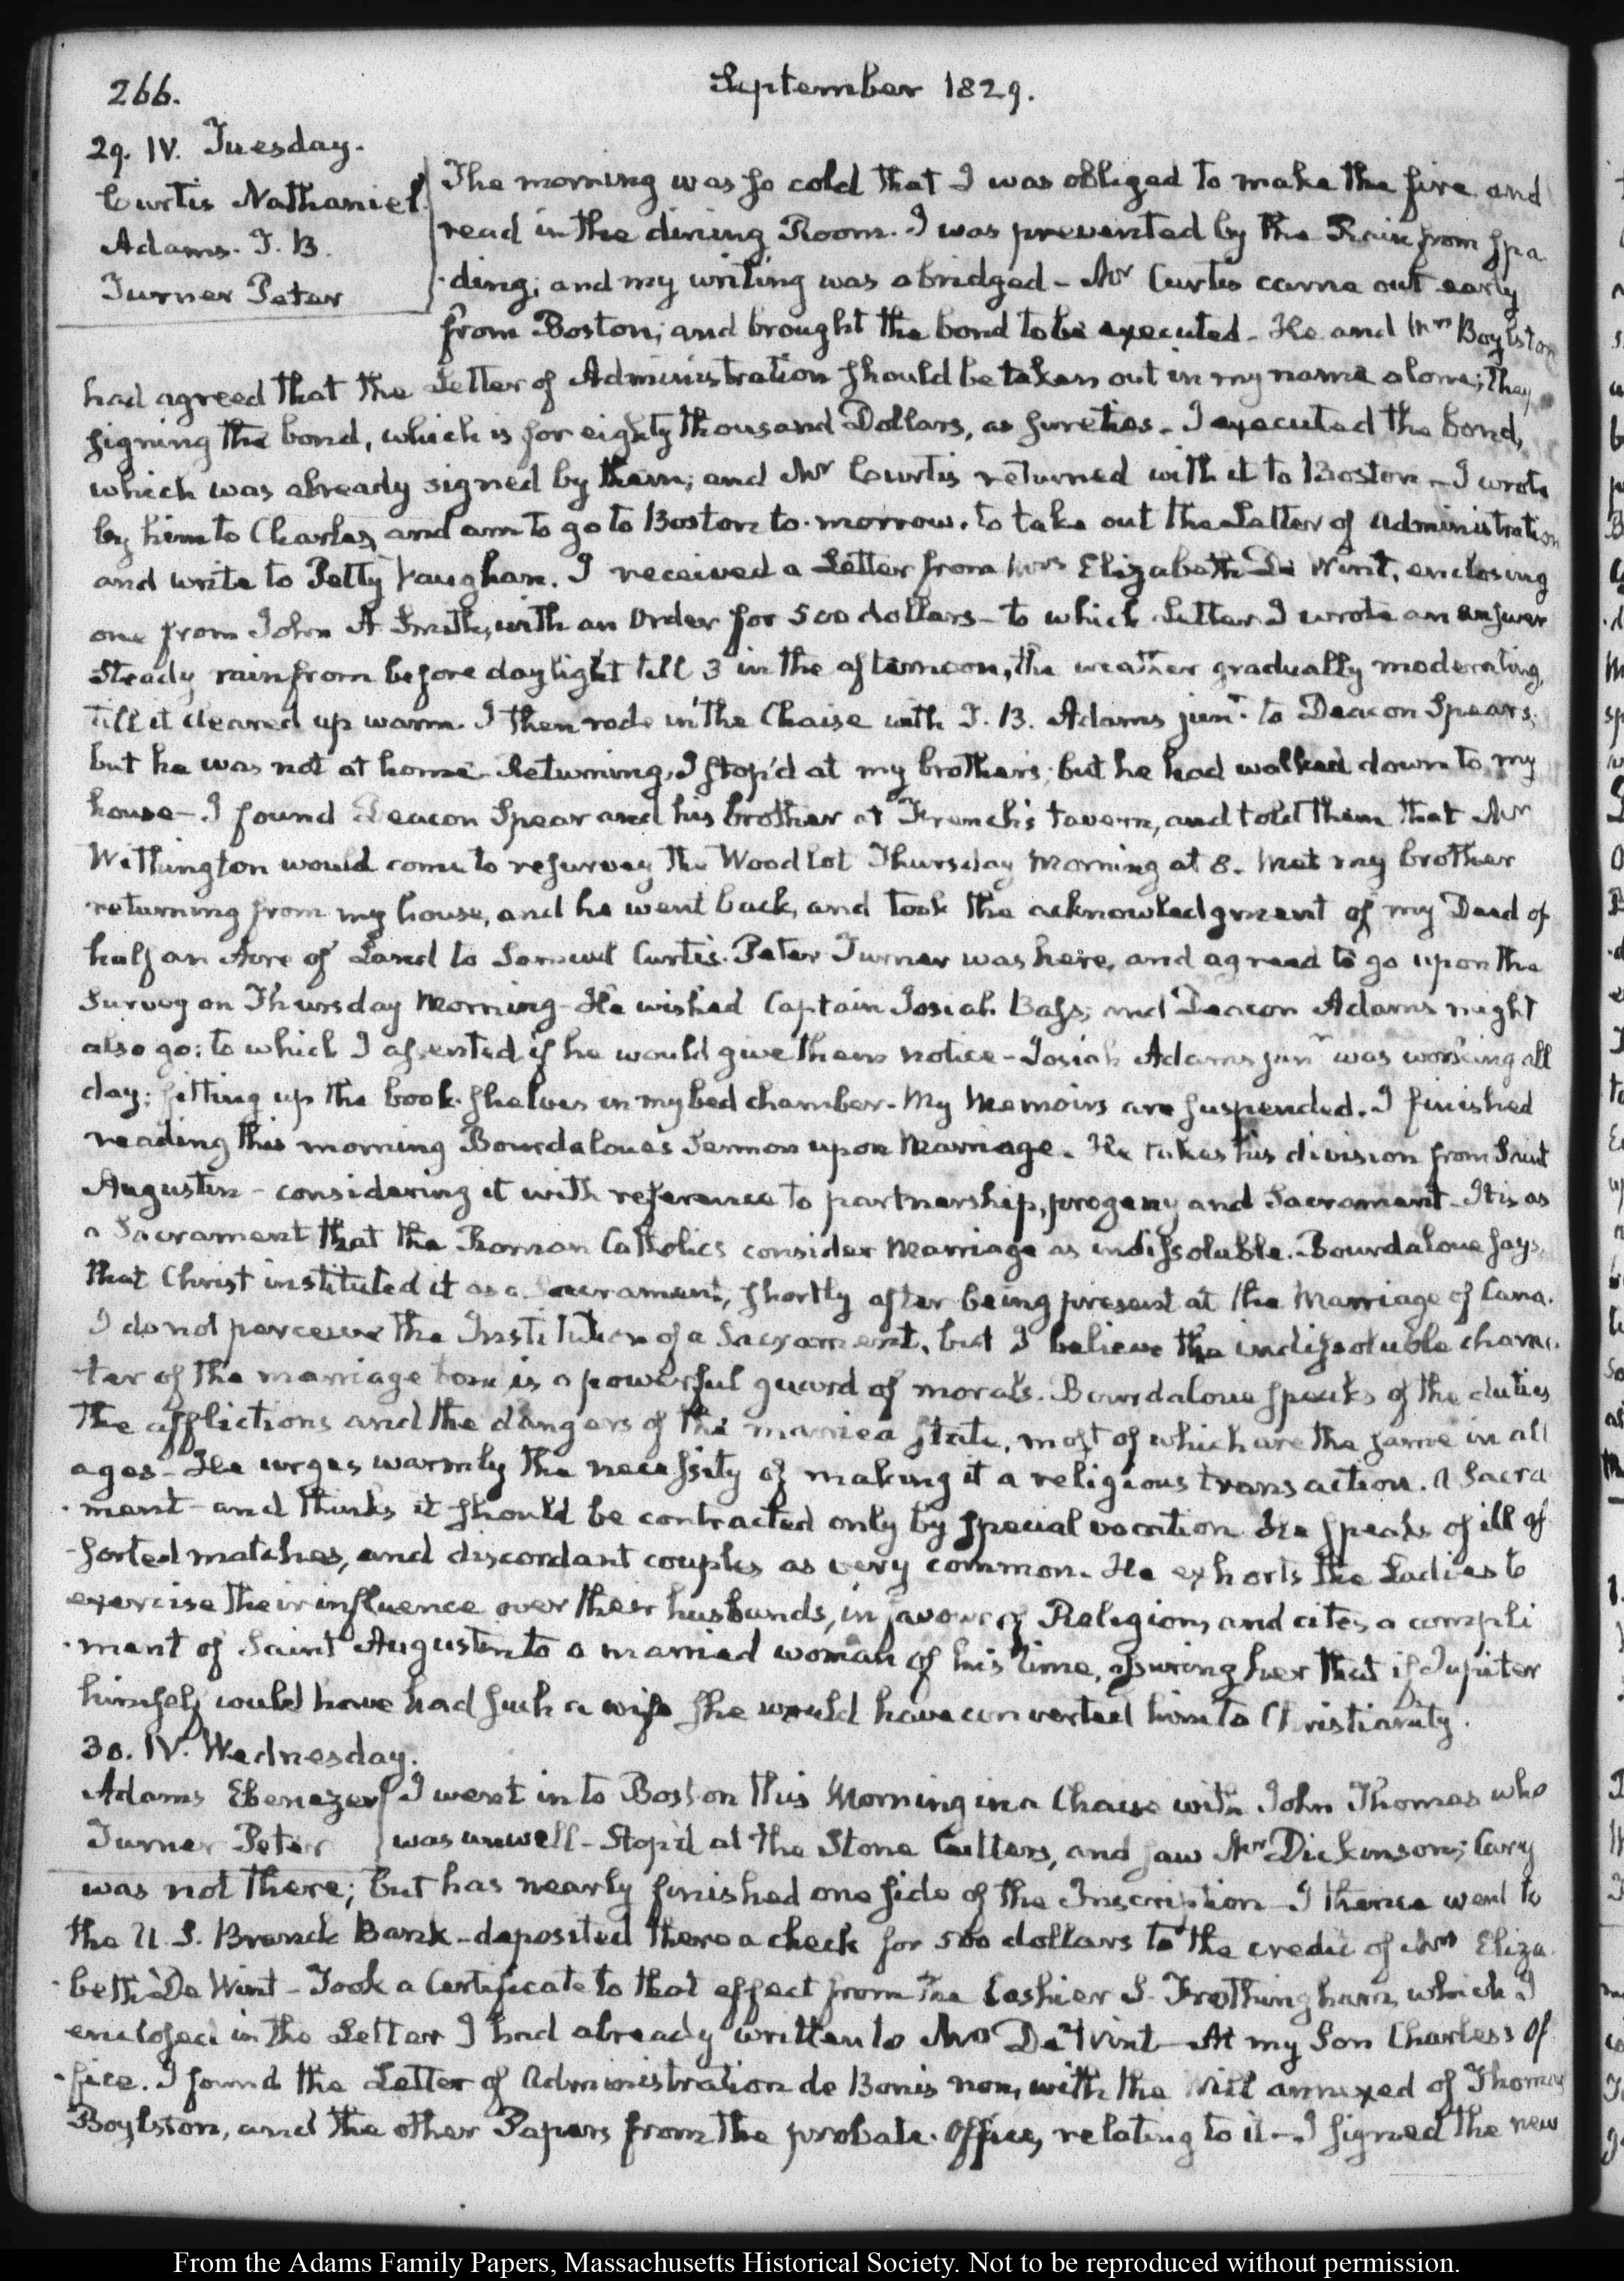 266.
September 1829.
29. IV. Tuesday.
Curtis Nathaniel.
Adams. T. B.
Turner Peter
The morning was so cold that I was obliged to make the fire and
read in the dining Room. I was prevented by the Rain from spa
ding; and my writing was abridged - Mr Curtis came out early
from Boston; and brought the bond to be executed - He and Mrs Boylston
had agreed that the Letter of Administration should be taken out in my name alone; they
signing the bond, which is for eighty thousand Dollars, as sureties - I executed the bond,
which was already signed by them; and Mr Curtis returned with it to Boston - I wrote
by him to Charles, and am to go to Boston to-morrow, to take out the Letter of Administration
and write to Petty Vaughan. I received a Letter from Mrs Elizabeth De Wint, enclosing
one from John A Smith, with an Order for 500 dollars - to which Letter I wrote an answer
Steady rain from before daylight till 3 in the afternoon, the weather gradually moderating,
till it cleared up warm. I then rode in the Chaise with T. B. Adams junr. to Deacon Spears,
but he was not at home - Returning, I stop'd at my brother's; but he had walked down to my
house - I found Deacon Spear and his brother at French's tavern, and told them that Mr
Withington would come to resurvey the Woodlot Thursday Morning at 8. Met my brother
returning from my house, and he went back, and took the acknowledgment of my Deed of
half an Acre of Land to Samuel Curtis. Peter Turner was here, and agreed to go upon the
Survey on Thursday Morning - He wished Captain Josiah Bass, and Deacon Adams might
also go: to which I assented if he would give them notice - Josiah Adams junr was working all
day; fitting up the book-shelves in my bed chamber. My Memoirs are suspended. I finished
reading this morning Bourdaloue's Sermon upon Marriage. He takes his division from Saint
Augustin - considering it with reference to partnership, progeny and Sacrament - It is as
a Sacrament that the Roman Catholics consider Marriage as indissoluble. Bourdaloue says,
that Christ instituted it as a Sacrament, shortly after being present at the Marriage of Cana.
I do not perceive the Institution of a Sacrament, but I believe the indissoluble charac
ter of the marriage is a powerful guard of morals. Bourdaloue speaks of the duties
the afflictions and the dangers of the married state, most of which are the same in all
ages - He urges warmly the necessity of making it a religious transaction. A Sacra
-ment - and thinks it should be contracted only by special vocation. He speaks of ill as
-sorted matches, and discordant couples as very common. He exhorts the Ladies to
exercise their influence over their husbands, in favour of Religion, and cites a compli
-ment of Saint Augustin to a married woman of his time, assuring her that if Jupiter
himself would have had such a wife she would have converted him to Christianity.
30. IV. Wednesday.
Adams Ebenezer
Turner Peter
I went in to Boston this Morning in a Chaise with John Thomas who
was unwell - Stop'd at the Stone Cutters, and saw Mr Dickinson; Cary
was not there; but has nearly finished one side of the Inscription - I thence went to
the U. S. Branch Bank - deposited there a check for 500 dollars to the credit of Mrs Eliza
-beth De Wint - Took a Certificate to that effect from the Cashier S. Frothingham, which I
enclosed in the Letter I had already written to Mrs De Wint - At my Son Charles's Of
-fice. I found the Letter of Administration de Bonis non, with the Will annexed of Thomas
Boylston, and the other Papers from the probate-Office, relating to it - I signed the new
From the Adams Family Papers, Massachusetts Historical Society. Not to be reproduced without permission.